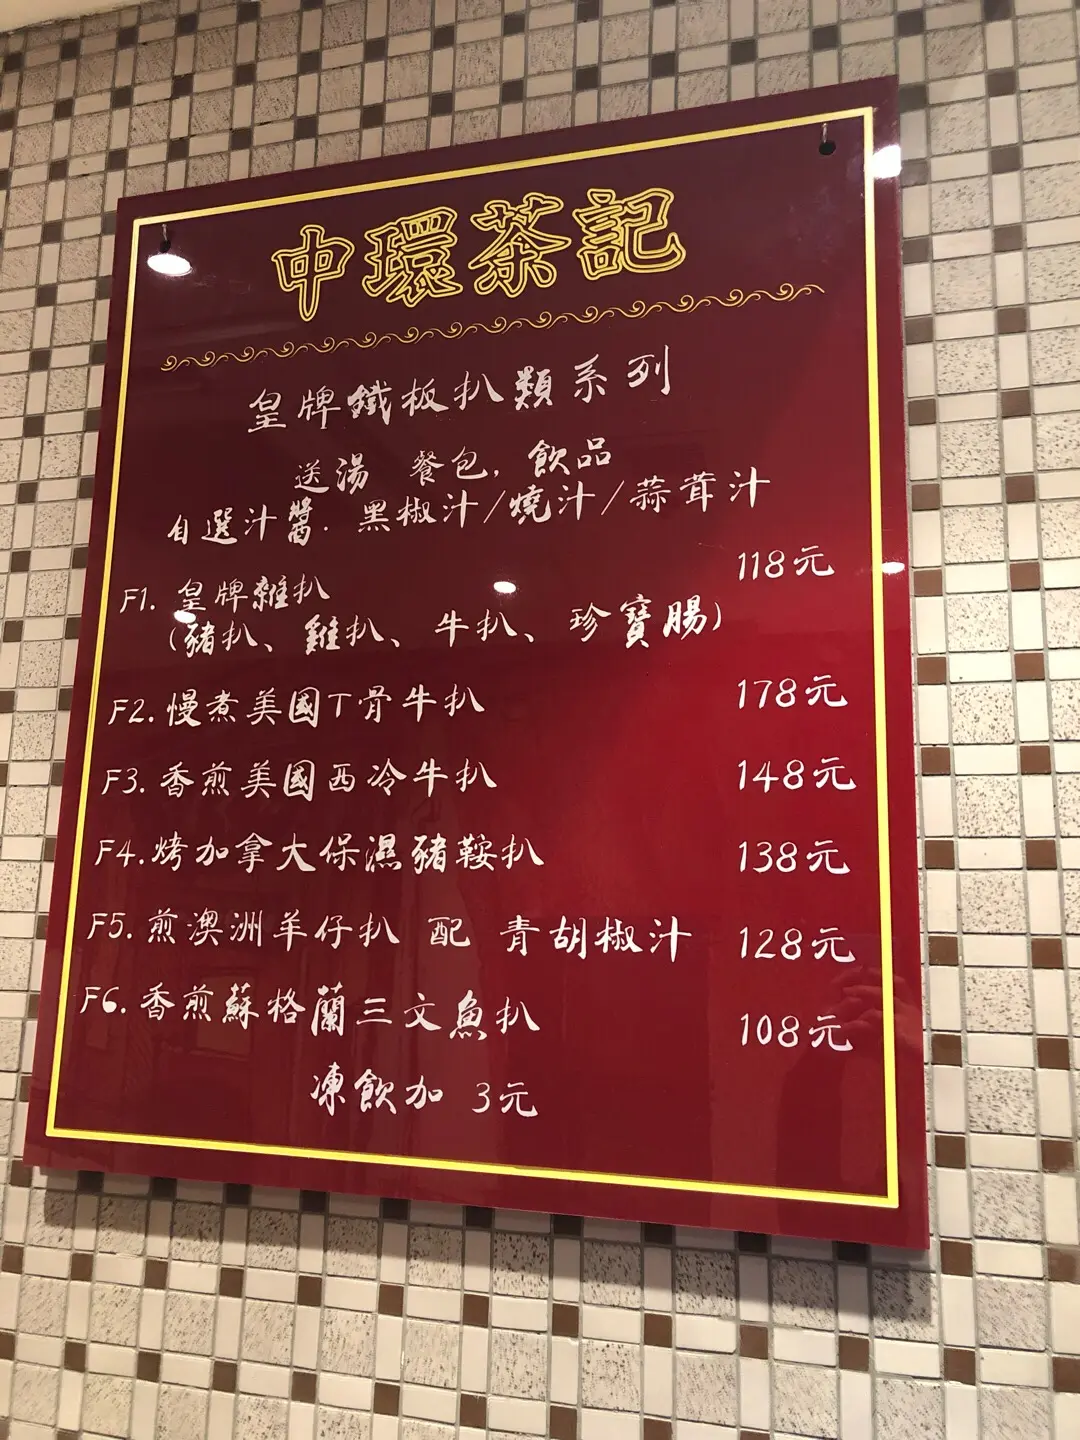 中環茶記
皇牌鐵板扒類系列
送湯 餐包, 飲品
自選汁醬. 黑椒汁/燒汁/蒜茸汁
F1. 皇牌雜扒 118元
(豬扒、雞扒、牛扒、珍寶腸)
F2. 慢煮美國T骨牛扒 178元
F3. 香煎美國西冷牛扒 148元
F4. 烤加拿大保濕豬鞍扒 138元
F5. 煎澳洲羊仔扒 配 青胡椒汁 128元
F6. 香煎蘇格蘭三文魚扒 108元
凍飲加 3元